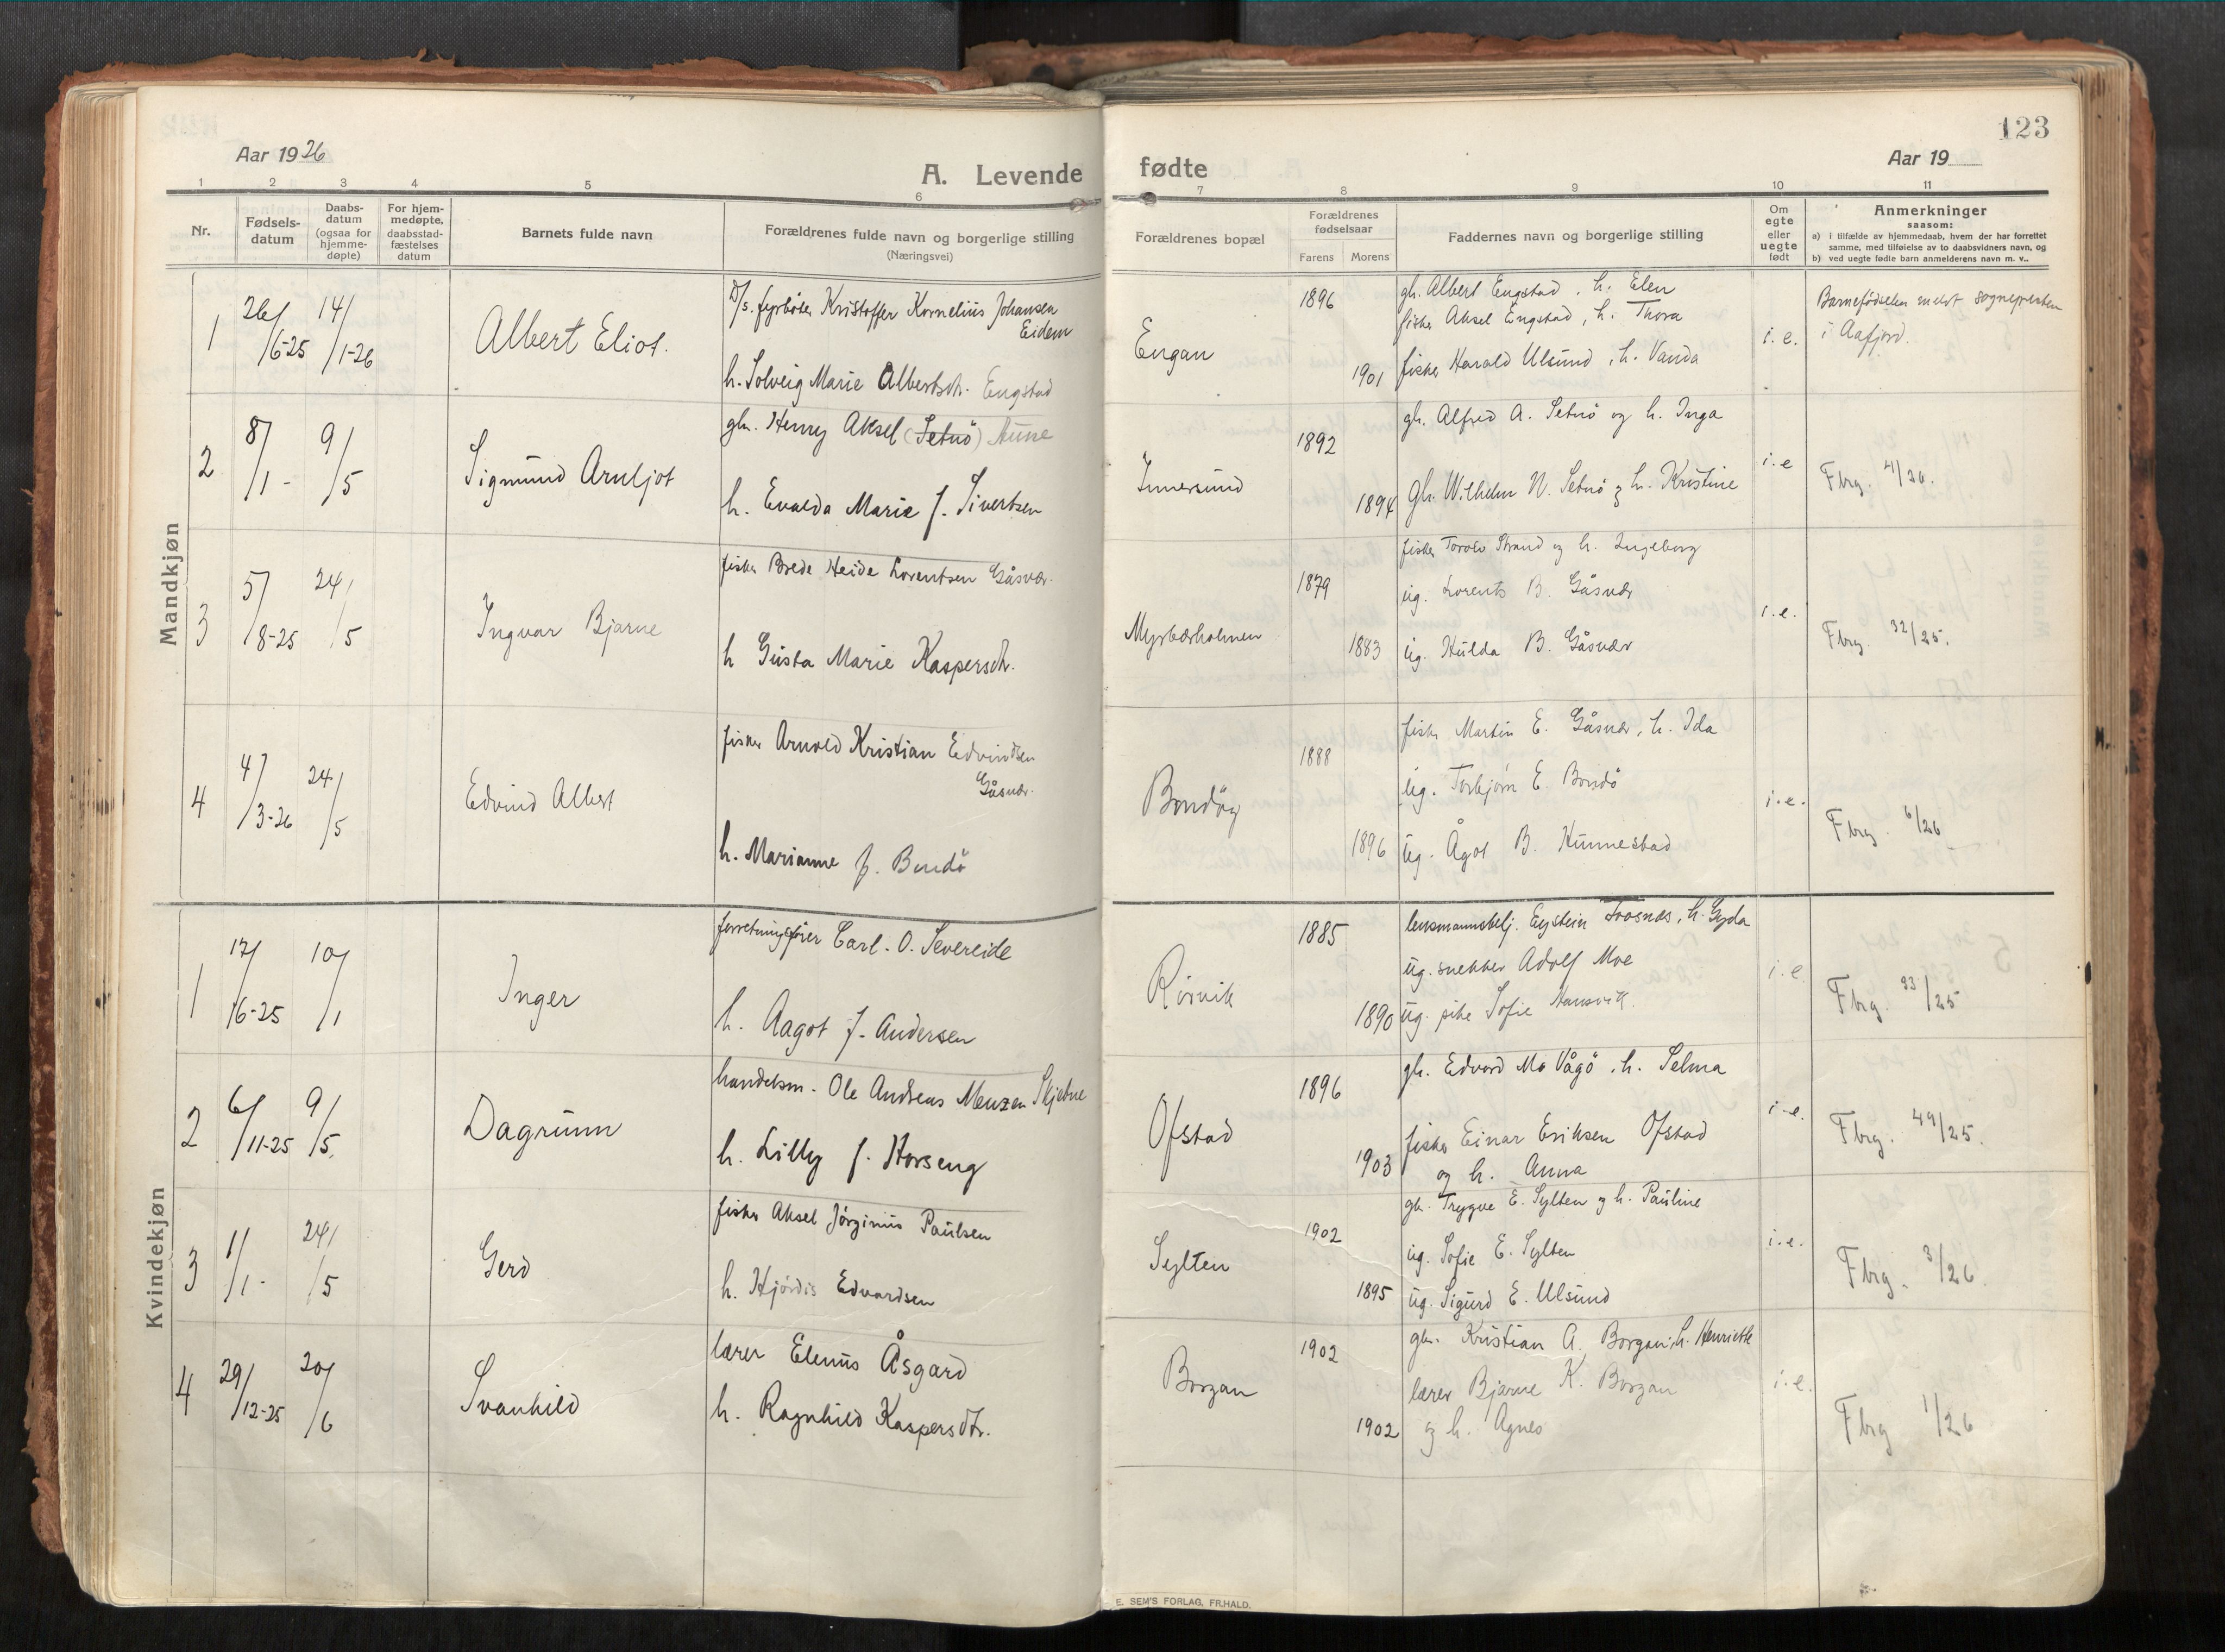 Aar 1926
A. Levende
1 2 3 4 5 6
Nr.
Fødsels-
datum
Daabs-
datum
(ogsaa for
hjemme-
døpte)
For hjem-
medøpte,
daabsstad-
fæstelses
datum
Barnets fulde navn
Forældrenes fulde navn og borgerlige stilling
(Næringsvei)
123
fødte
Aar 19
7 8 9 10 11
Forældrenes bopæl
Forældrenes
fødselsaar
Farens Morens
Faddernes navn og borgerlige stilling
Om
egte
eller
uegte
født
Anmerkninger
saasom:
a) i tilfælde av hjemmedaab, hvem der har forrettet
samme, med tilføielse av to daabsvidners navn, og
b) ved uegte fødte barn anmelderens navn m. v..
Mandkjøn
1 26/6-25 14/1-26 Albert Eliot.
D/s. fyrbøter Kristoffer Kornelius Johansen
Eidem
h. Solveig Marie Albertsdtr. Engstad
Engan 1896 1901
gh. Albert Engstad, h. Elen
fisker Aksel Engstad, h. Thora
fisker Harald Ulsund, h. Vanda
i.e.
Barnefødselen meldt sognepresten
i Aafjord.
2 8/1- 9/5 Sigmund Arnljot
gbr. Henry Aksel (Setnö) Aune
h. Evalda Marie f. Sivertsen
Innersund 1892 1894
gb. Alfred A. Setnö og h. Inga
Gb. Wilhelm N. Setnö og h. Kristine
i.e
Fbrg. 4/26.
3 5/8-25 24/5 Ingvar Bjarne
fisker Brede Heide Lorentsen Gåsvær.
h Gusta Marie Kaspersdtr.
Myrbærholmen 1879 1883
fisker Torolv Strand og h. Ingeborg
ug. Lorents B. Gåsvær
ug. Hulda B. Gåsvær
i.e.
Fbrg. 32/25.
4 4/3-26 24/5 Edvind Albert
fisker Arnold Kristian Edvindsen
Gåsvær.
h. Marianne f. Bondö
Bondöy 1888 1896
fisker Martin E. Gåsvær, h. Ida
ug. Torbjörn E. Bondö
ug. Ågot B. Hunnestad
i.e.
Fbrg. 6/26
Kvindekjøn
1 17/6-25 10/1 Inger
forretningsfører Carl. O. Severeide
h. Aagot f. Andersen
Rörvik 1885 1890
lensmannsbetj. Eystein Fosnæs, h. Gyda
ug. snekker Adolf Moe
ug. pike Sofie Hansvik.
i.e
Fbrg. 23/25
2 6/11-25 9/5. Dagrunn
handelsm. Ole Andreas Menzen Skjetne
h. Lilly f. Horseng
Ofstad 1896 1903
gb. Edvard Mo Vågö, h. Selma
fisker Einar Eriksen Ofstad
og h. Anna
i.e.
Fbrg. 49/25.
3 1/1- 24/5 Gerd
fisker Aksel Jörginius Paulsen
h. Hjördis Edvardsen
Sylten 1902 1895
gb. Trygve E. Sylten og h. Pauline
ug. Sofie E. Sylten
ug. Sigurd E. Ulsund
i.e.
Fbrg. 3/26
4 29/12-25 20/6 Svanhild
lærer Elenus Åsgard
h. Ragnhild Kaspersdtr.
Borgan 1902 1902
gbr. Kristian A. Borgan, h. Henriette
lærer Bjarne K. Borgan
og h. Agnes
i.e.
Fbrg 1/26
E. SEM'S FORLAG, FR.HALD.